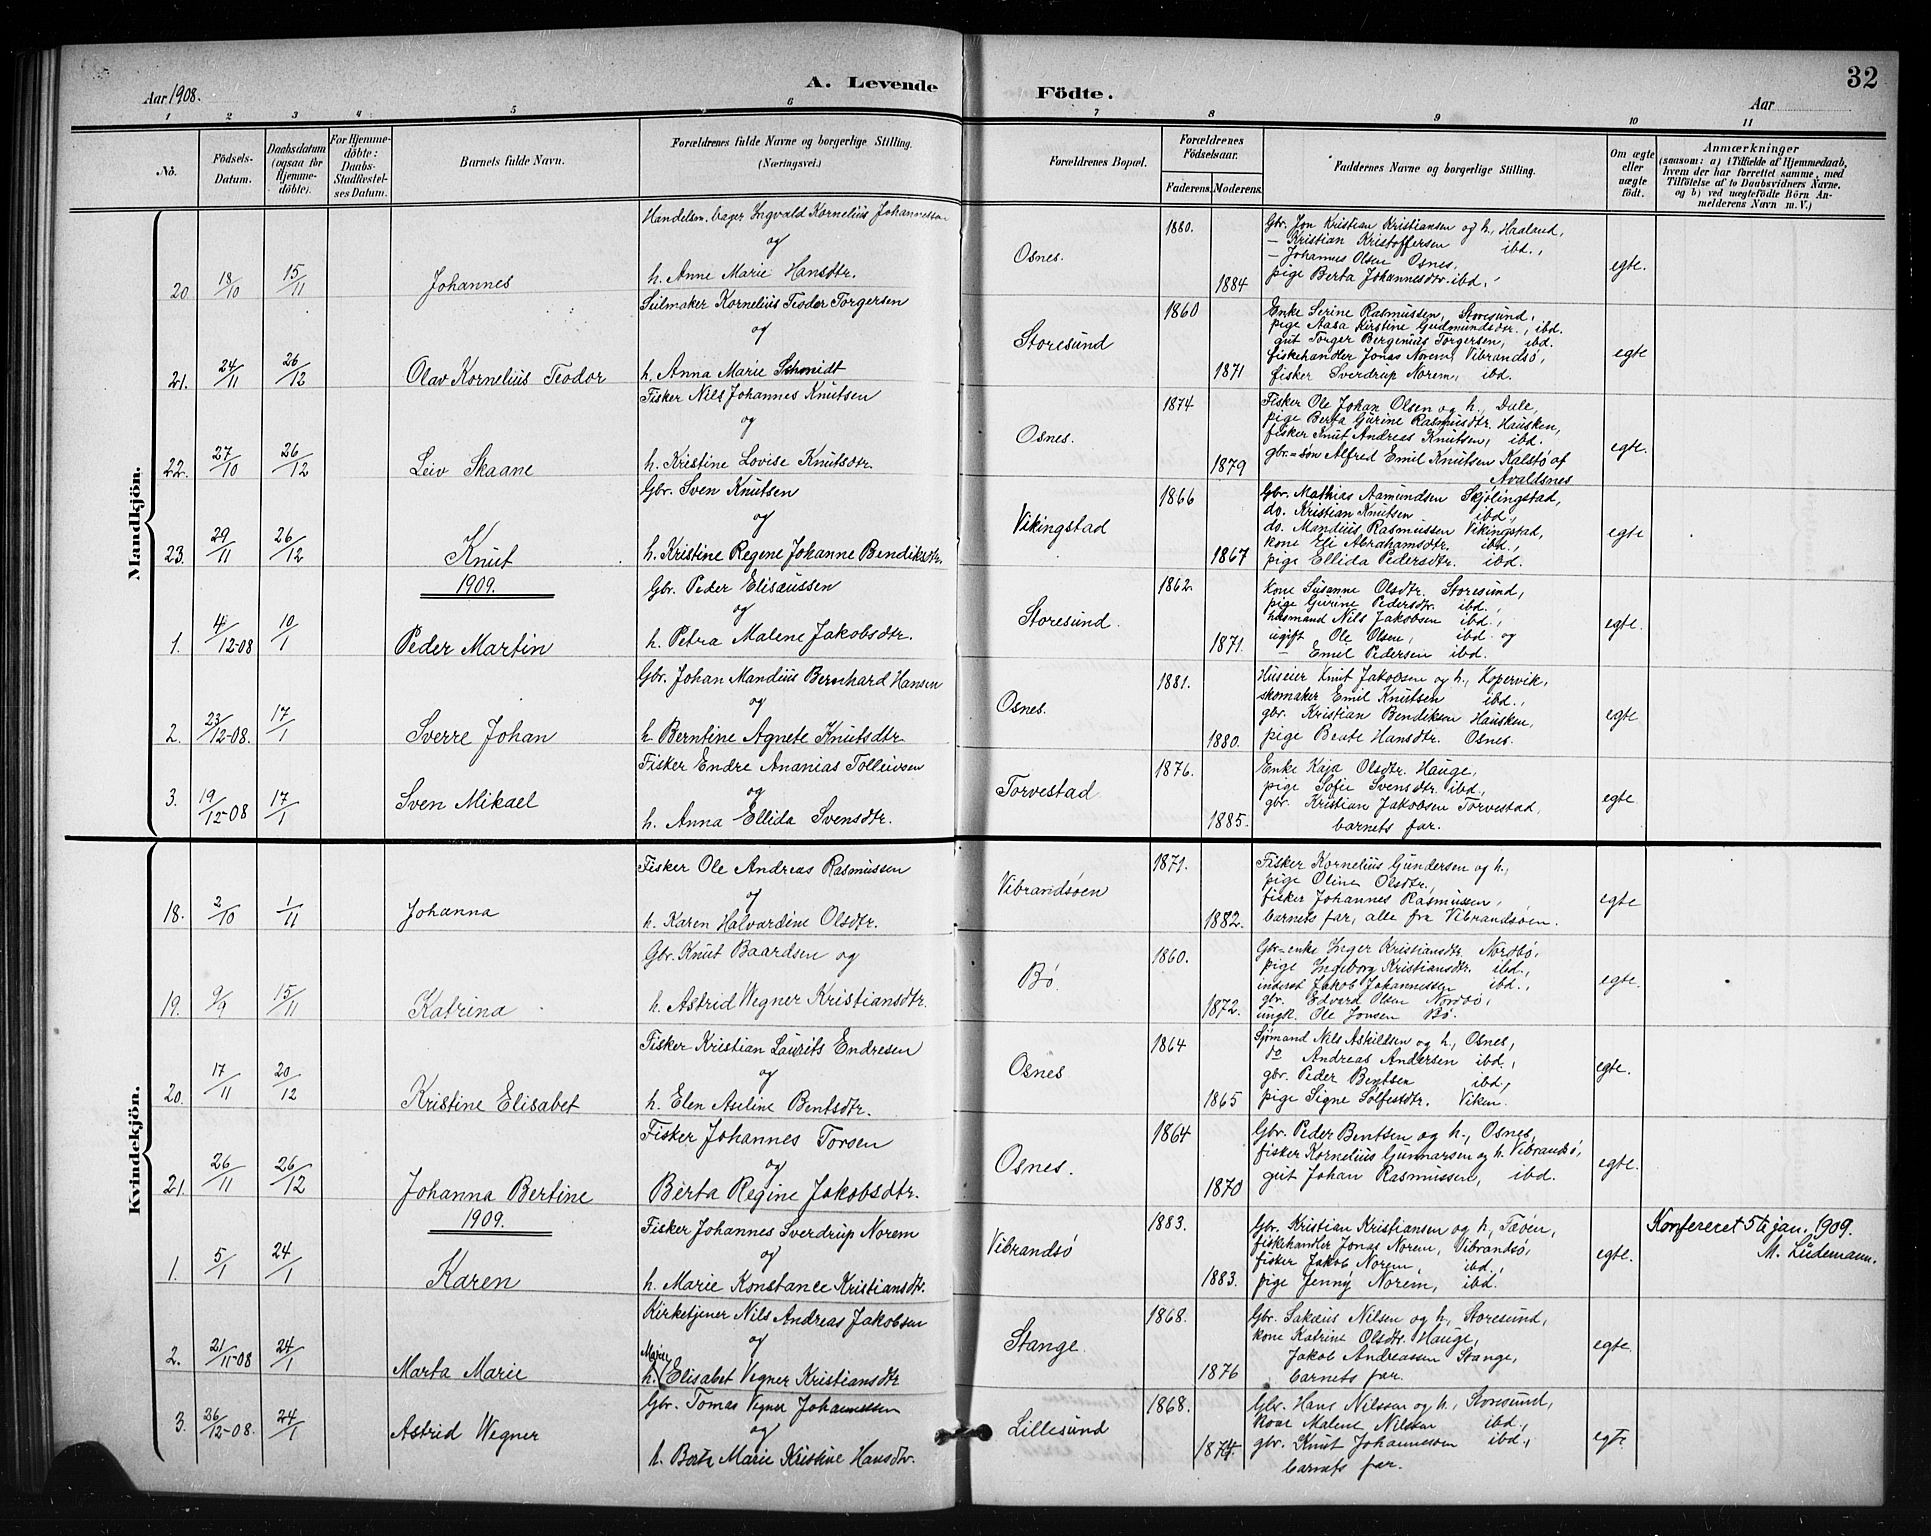 32
A. Levende Födte.
Aar 1908.
Aar
1 2 3 4 5 6 7 8 9 10 11
No.
Födsels-Datum.
Daabsdatum (ogsaa for Hjemme-döbte).
For Hjemme-döbte: Daabs-Stadfæstel-ses Datum.
Barnets fulde Navn.
Forældrenes fulde Navne og borgerlige Stilling.
(Næringsvei.)
Forældrenes Bopæl.
Forældrenes Födselsaar.
Faderens. Moderens.
Faddernes Navne og borgerlige Stilling.
Om ægte eller uægte födt.
Anmærkninger
(saasom: a) i Tilfælde af Hjemmedaab, hvem der har forrettet samme, med Tilföielse af to Daabsvidners Navne. og b) ved uægtefödte Börn An-melderens Navn m. V.)
Mandkjön.
20 18/10 15/11 Johannes
Handelsm. bager Ingvald Kornelius Johannessen
og
h. Anne Marie Hansdtr.
Osnes. 1880. 1884
Gbr. Jon Kristian Kristiansen og h., Haaland,
— Kristian Kristoffersen ibd.,
— Johannes Olsen Osnes.
pige Berta Johannesdtr. ibd.,
egte.
21. 24/11 26/12 Olav Kornelius Teodor
Seilmaker Kornelius Teodor Torgersen
og
h. Anna Marie Schmidt
Storesund 1860 1871
Enke Serine Rasmussen, Storesund,
pige Aasa Kirstine Gudmundsdtr., ibd.
gut Torger Bergenius Torgersen, ibd.
fiskehandler Jonas Norem, Vibrandsø,
fisker Sverdrup Norem, ibd.
egte
22. 27/10 26/12 Leiv Skaane
Fisker Nils Johannes Knutsen
og
h. Kristine Lovise Knutsdtr.
Osnes. 1874 1879
Fisker Ole Johan Olsen og h., Dale,
pige Berta Gurine Rasmusdtr. Hausken,
fisker Knut Andreas Knutsen, ibd.
gbr=søn Alfred Emil Knutsen Kalstø af
Avaldsnes
egte.
23. 29/11 26/12 Knut
Gbr. Sven Knutsen
og
h. Kristine Regene Johanne Bendiksdtr.
Vikingstad 1866 1867
Gbr. Mathias Aamundsen Skjølingstad,
do. Kristian Knutsen ibd.,
do. Mandius Rasmussen Vikingstad,
kone Eli Abrahamsdtr. ibd.,
pige Ellida Pedersdtr. ibd.
egte
1909.
1. 4/12-08 10/1 Peder Martin
Gbr. Peder Elisæussen
og
h. Petra Malene Jakobsdtr.
Storesund. 1862. 1871.
Kone Susanne Olsdtr. Storesund,
pige Gurine Pedersdtr. ibd.,
husmand Nils Jakobsen ibd.,
ugift Ole Olsen, ibd. og
— Emil Pedersen ibd.
egte.
2. 23/12-08. 17/1 Sverre Johan
Gbr. Johan Mandius Bernhard Hansen
og
h. Berntine Agnete Knutsdtr.
Osnes. 1881. 1880.
Huseier Knut Jakobsen og h., Kopervik,
skomaker Emil Knutsen ibd.,
gbr. Kristian Bendiksen Hausken,
pige Beate Hansdtr. Osnes.
egte
3. 19/12-08 17/1 Sven Mikael
Fisker Endre Ananias Tolleivsen
og
h. Anna Ellida Svensdtr.
Torvestad 1876. 1885.
Enke Kaja Olsdtr. Hauge,
pige Sofie Svensdtr. ibd.,
gbr. Kristian Jakobsen Torvestad,
barnets far.
egte
Kvindekjön.
18. 2/10 1/11 Johanna
Fisker Ole Andreas Rasmussen
og
h. Karen Halvardine Olsdtr.
Vibrandsøen 1871. 1882.
Fisker Kornelius Gundersen og h.,
pige Oline Olsdtr.,
fisker Johannes Rasmussen,
barnets far, alle fra Vibrandsøen.
egte
19. 9/9 15/11 Katrina
Gbr. Knut Baardsen og
h. Astrid Wegner Kristiansdtr.
Bø. 1860. 1872.
Gbr=enke Inger Kristiansdtr. Nordbø,
pige Ingeborg Kristiansdtr. ibd.,
inderst Jakob Johannessen ibd.,
gbr. Edvard Olsen Nordbø,
ungk. Ole Jonsen Bø.
egte.
20. 17/11 20/12 Kristine Elisabet
Fisker Kristian Laurits Endresen
og
h. Elen Aseline Bentsdtr.
Osnes 1864 1865
Sjømand Nils Askildsen og h., Osnes,
do Andreas Andersen ibd.,
gbr. Peder Bentsen ibd.,
pige Signe Solfestdtr. Viken.
egte.
21. 26/11 26/12 Johanna Bertine
Fisker Johannes Torsen
og
Berta Regine Jakobsdtr.
Osnes. 1864 1870
Gbr. Peder Bentsen og h., Osnes,
fisker Kornelius Gunnarsen og h. Vibrandsø,
gut Johan Rasmussen, ibd.
egte.
1909.
1. 5/1 24/1 Karen
Fisker Johannes Sverdrup Norem
og
h. Marie Konstance Kristiansdtr.
Vibrandsø 1883. 1883.
Gbr. Kristian Kristiansen og h., Føøen,
fiskehandler Jonas Norem, Vibrandsø,
fisker Jakob Norem, ibd.,
pige Jenny Norem, ibd.
egte.
Konfereret 5te jan. 1909.
M. Lüdemann.
2. 21/11-08 24/1 Marta Marie
Kirketjener Nils Andreas Jakobsen
og
Marie
h. Elisabet Vegner Kristiansdtr
Stange. 1868. 1876
Gbr. Sakæus Nilsen og h., Storesund,
kone Katrine Olsdtr. Hauge,
Jakob Andreassen Stange,
barnets far.
egte.
3. 26/12-08. 24/1 Astrid Wegner
Gbr. Tomas Vegner Johannessen
og
h. Berta Marie Kristine Hansdtr.
Lillesund 1868. 1874.
Gbr. Hans Nilssen og h., Storesund,
Malene Nilsen ibd.,
gbr. Knut Johannessen ibd.,
barnets far.
egte